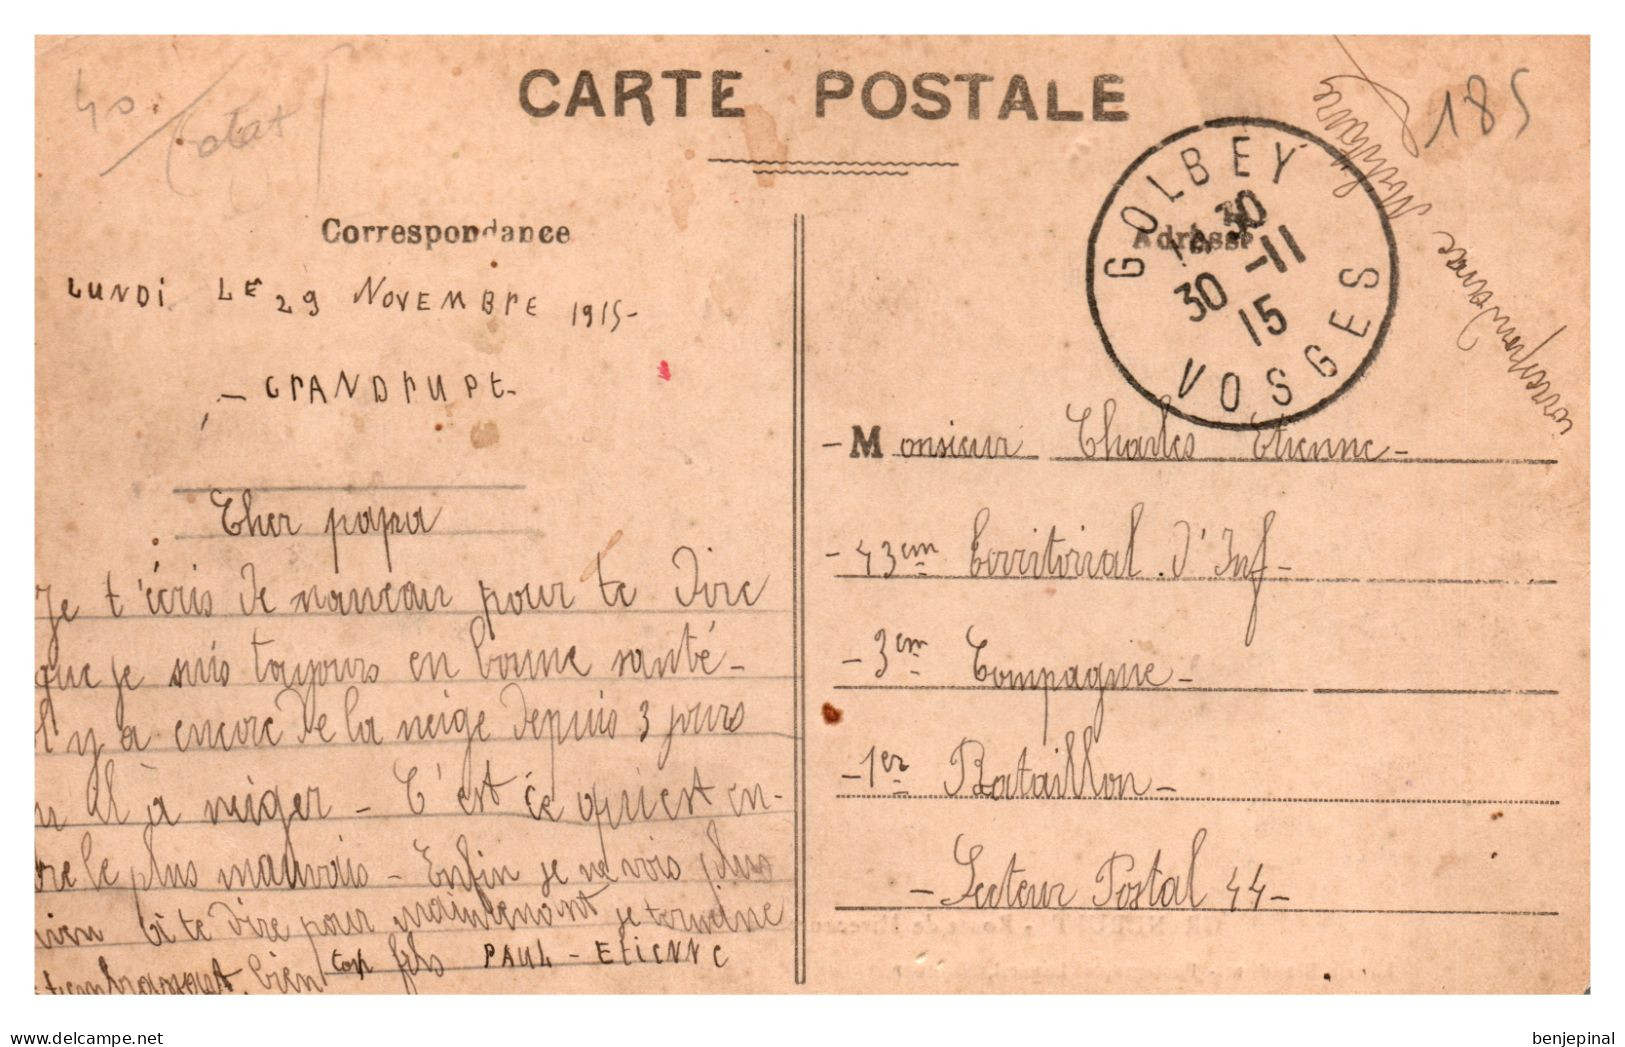 CARTE POSTALE
40
185
Correspondance
Adresse
GOLBEY
30-11
30 15
VOSGES
Correspondance Militaire
LUNDI LE 29 NOVEMBRE 1915-
- GRANDRUPT-
Cher papa
Je t'écris de nouveau pour te dire
que je suis toujours en bonne santé-
Il y a encore de la neige depuis 3 jours
il à neiger - C'est ce qui est en-
ore le plus mauvais - Enfin je ne vois plus
rien à te dire pour maintenant je termine
t'embrassant bien ton fils PAUL - ETIENNE
- Monsieur Charles Etienne-
- 43em Territorial d'Inf-
- 3em Compagnie-
- 1er Bataillon-
- Secteur Postal 44-
www.delcampe.net
benjepinal